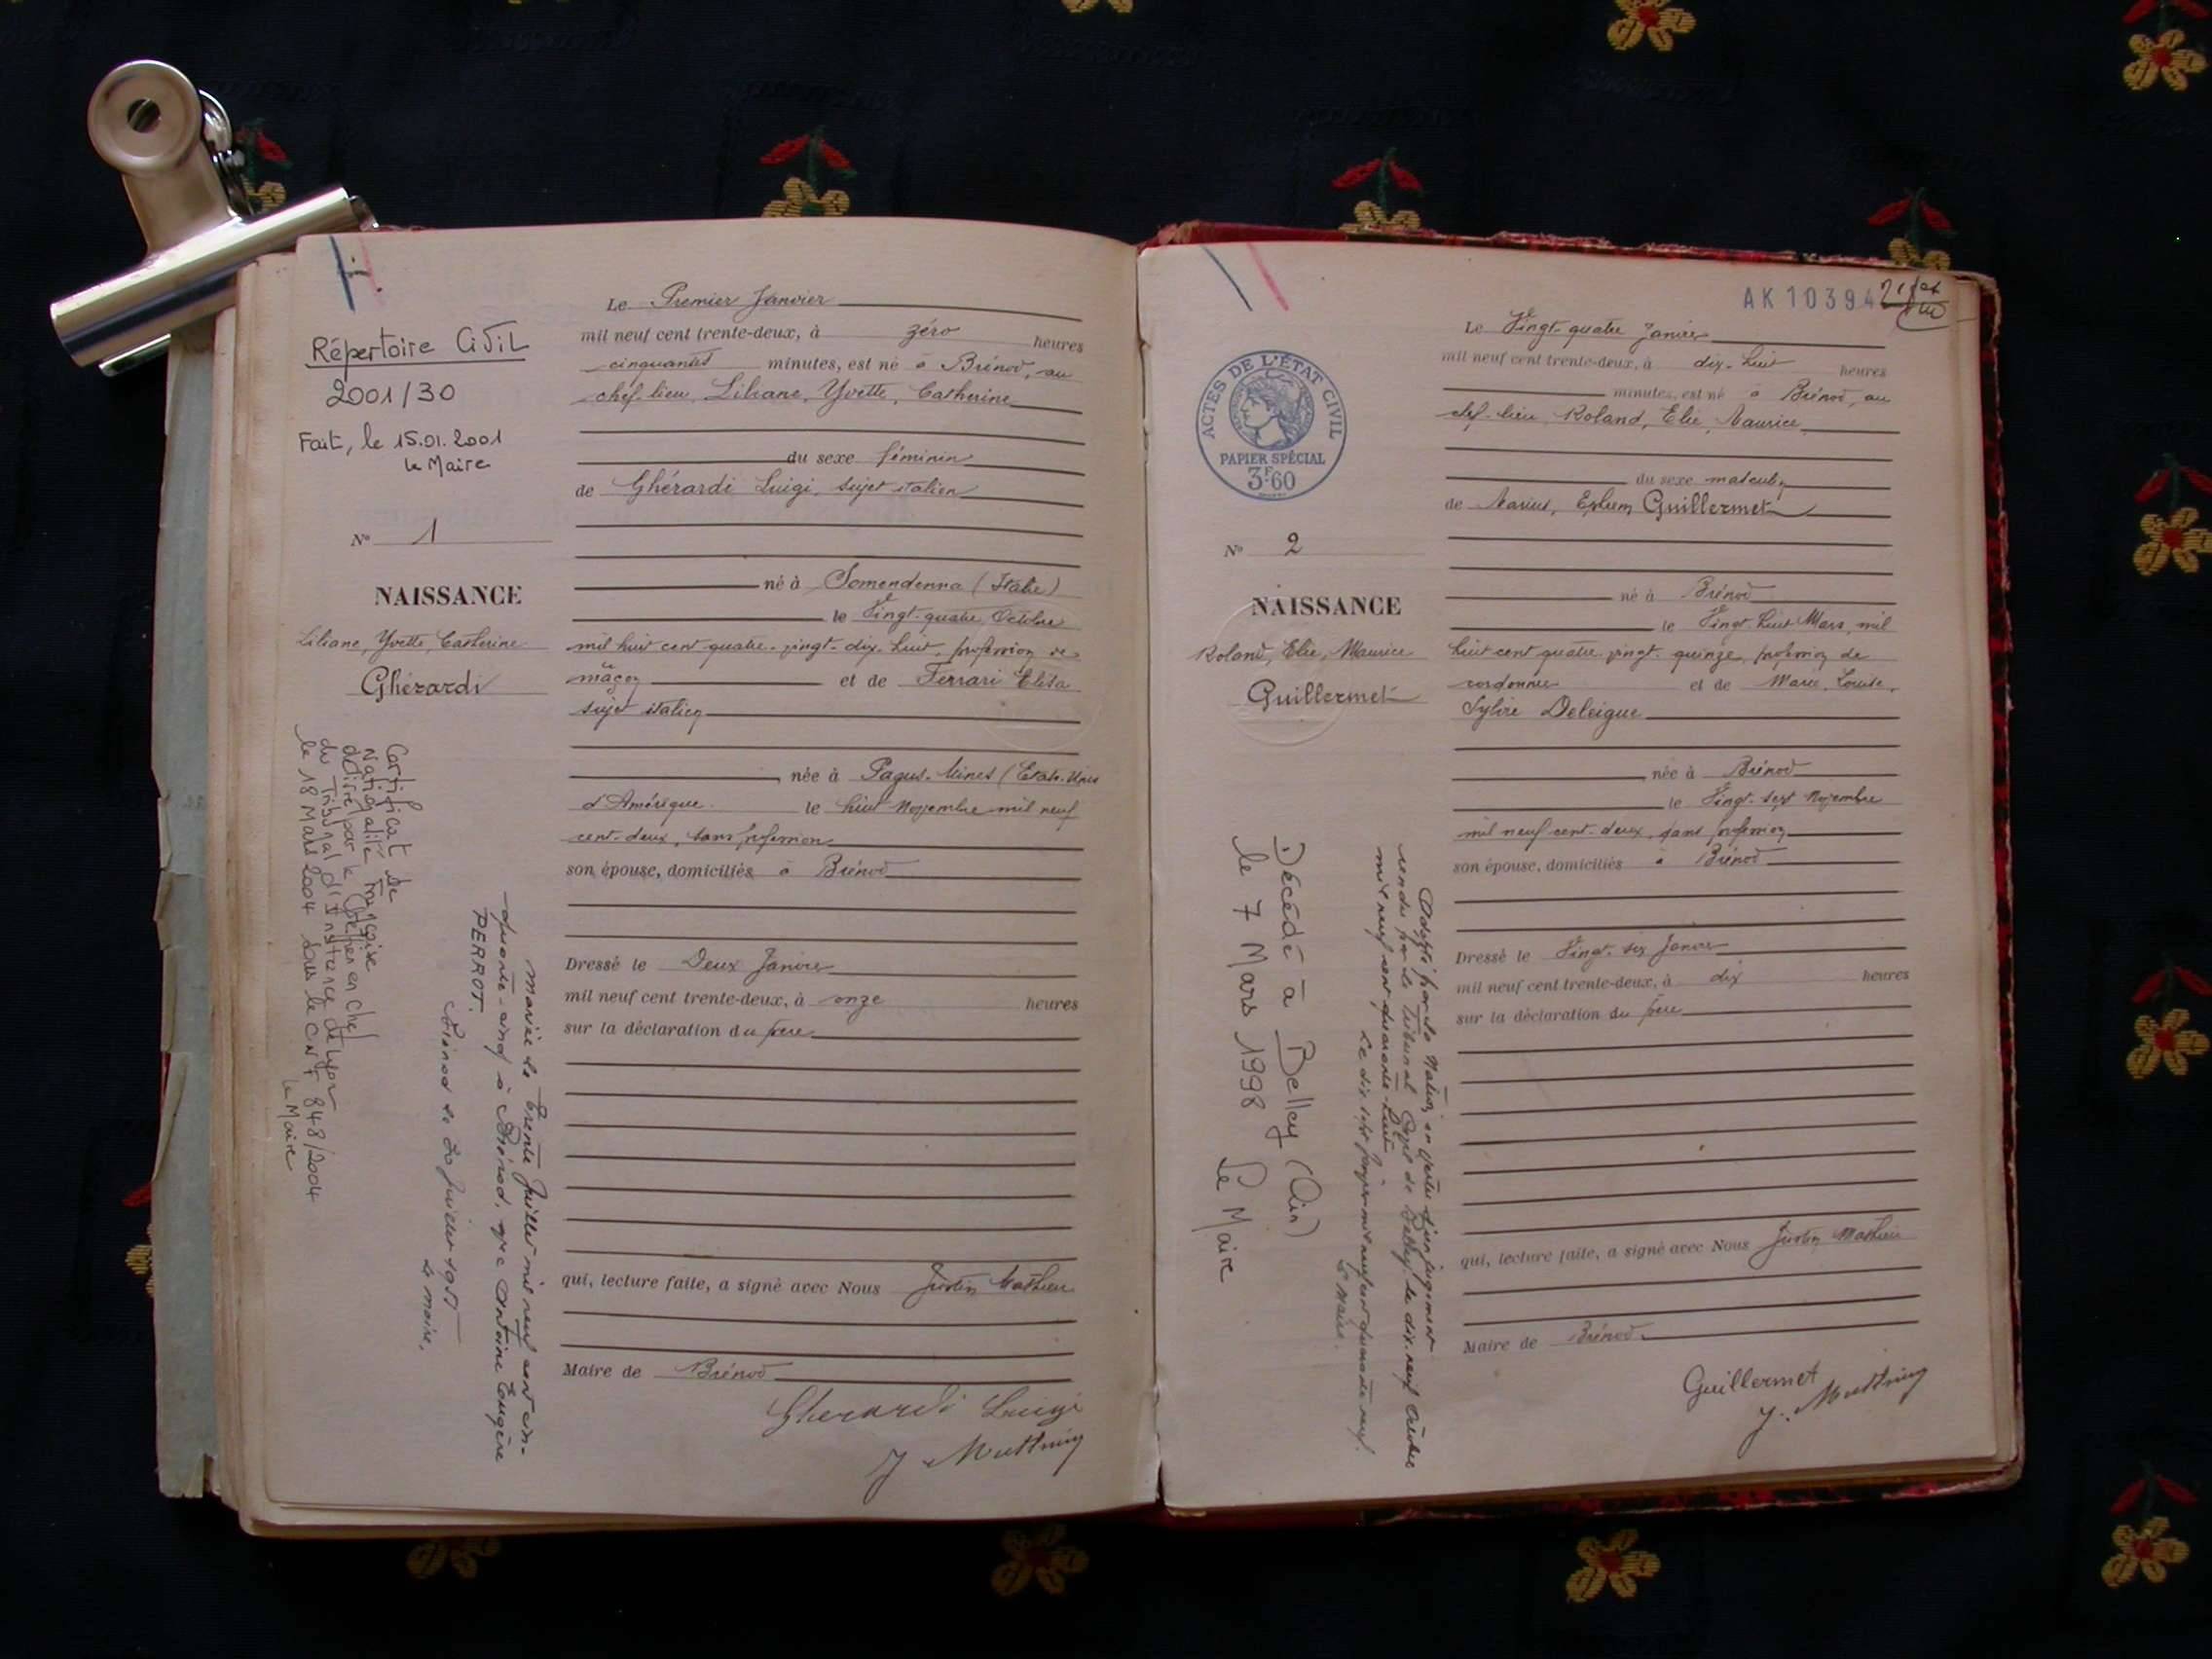 Répertoire Civil
2001/30
Fait, le 15.01.2001
le Maire
N° 1
NAISSANCE
Liliane, Yvette, Catherine
Ghérardi
Certificat de
Nationalité Française
délivré par le Greffier en chef
du Tribunal d'Instance de Lyon
le 18 Mars 2004 sous le CNF 848/2004
le Maire
Mariée le trente Juillet mil neuf cent cin-
quante-cinq à Brénod, avec Antoine Eugène
PERROT.
Brénod le 30 Juillet 1955
Le maire,
Le Premier Janvier
mil neuf cent trente-deux, à zéro heures
cinquante minutes, est né à Brénod, au
chef-lieu, Liliane, Yvette, Catherine
du sexe féminin
de Ghérardi Luigi, sujet italien
né à Somendenna (Italie)
le Vingt-quatre Octobre
mil huit cent quatre-vingt-dix-huit, profession de
maçon et de Ferrari Elisa
sujet italien
née à Pagus-Mines (Etats-Unis
d'Amérique. le huit Novembre mil neuf
cent-deux, sans profession
son épouse, domiciliés à Brénod
Dressé le Deux Janvier
mil neuf cent trente-deux, à onze heures
sur la déclaration du père
qui, lecture faite, a signé avec Nous Justin Mathieu
Maire de Brénod
Gherardi Luigi
J.
AK 10394
ACTES DE L'ÉTAT CIVIL
PAPIER SPÉCIAL
3F60
N° 2
NAISSANCE
Roland, Elie, Maurice
Guillermet
Décédé à Belley (Ain)
le 7 Mars 1998 Le Maire
Adopté par la Nation en vertu d'un jugement
rendu par le Tribunal Civil de Belley le dix-neuf Octobre
mil neuf cent quarante-huit
Le dix-sept janvier mil neuf cent quarante neuf.
Le Maire
Le Vingt-quatre Janvier
mil neuf cent trente-deux, à dix-huit heures
minutes, est né à Brénod, au
chef-lieu, Roland, Elie, Maurice
du sexe masculin
de Marius, Guillermet
né à Brénod
le Vingt-huit Mars, mil
huit cent quatre-vingt-quinze, profession de
cordonnier et de Marie, Louise,
Sylvie Deleigue
née à Brénod
le Vingt-sept Novembre
mil neuf cent-deux, sans profession
son épouse, domiciliés à Brénod
Dressé le Vingt-six Janvier
mil neuf cent trente-deux, à dix heures
sur la déclaration du père
qui, lecture faite, a signé avec Nous Justin Mathieu
Maire de Brénod
Guillermet
J.